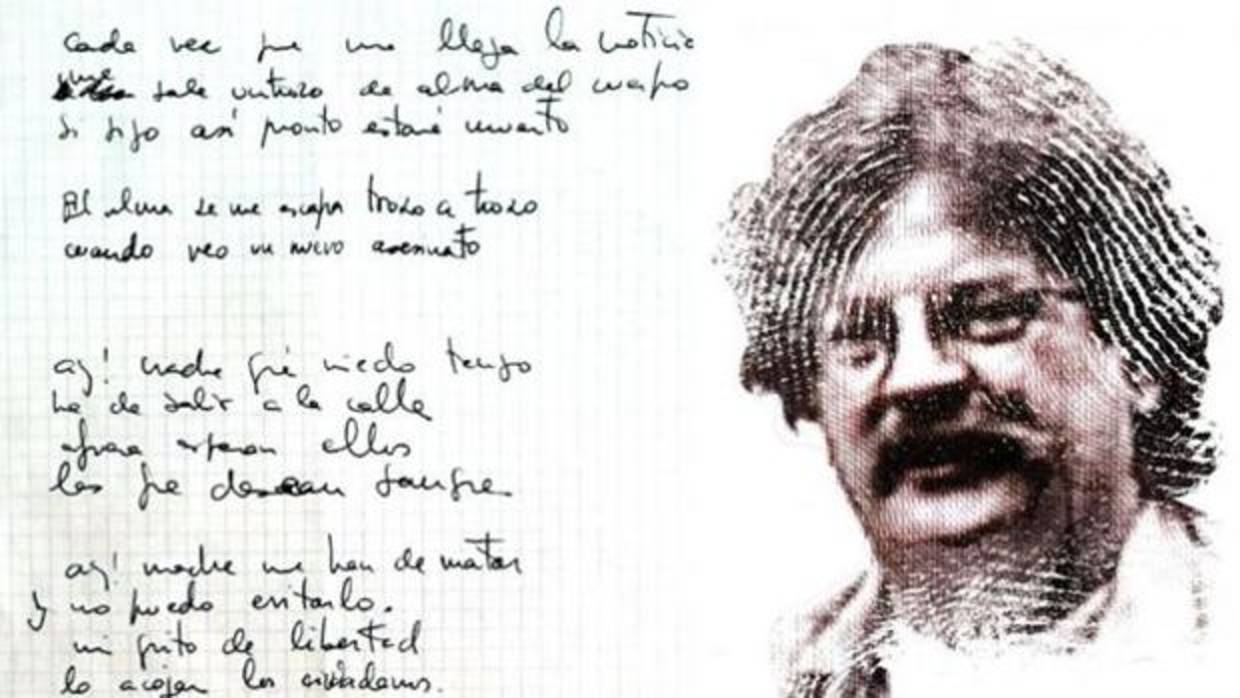 Cada vez que me llega la noticia
me sale un trozo de alma del cuerpo
Si sigo así pronto estaré muerto
El alma se me escapa trozo a trozo
cuando veo un nuevo asesinato
ay! madre qué miedo tengo
he de salir a la calle
afuera esperan ellos
los que desean sangre
ay! madre me han de matar
y no puedo evitarlo.
mi grito de libertad
lo acojan los ciudadanos.